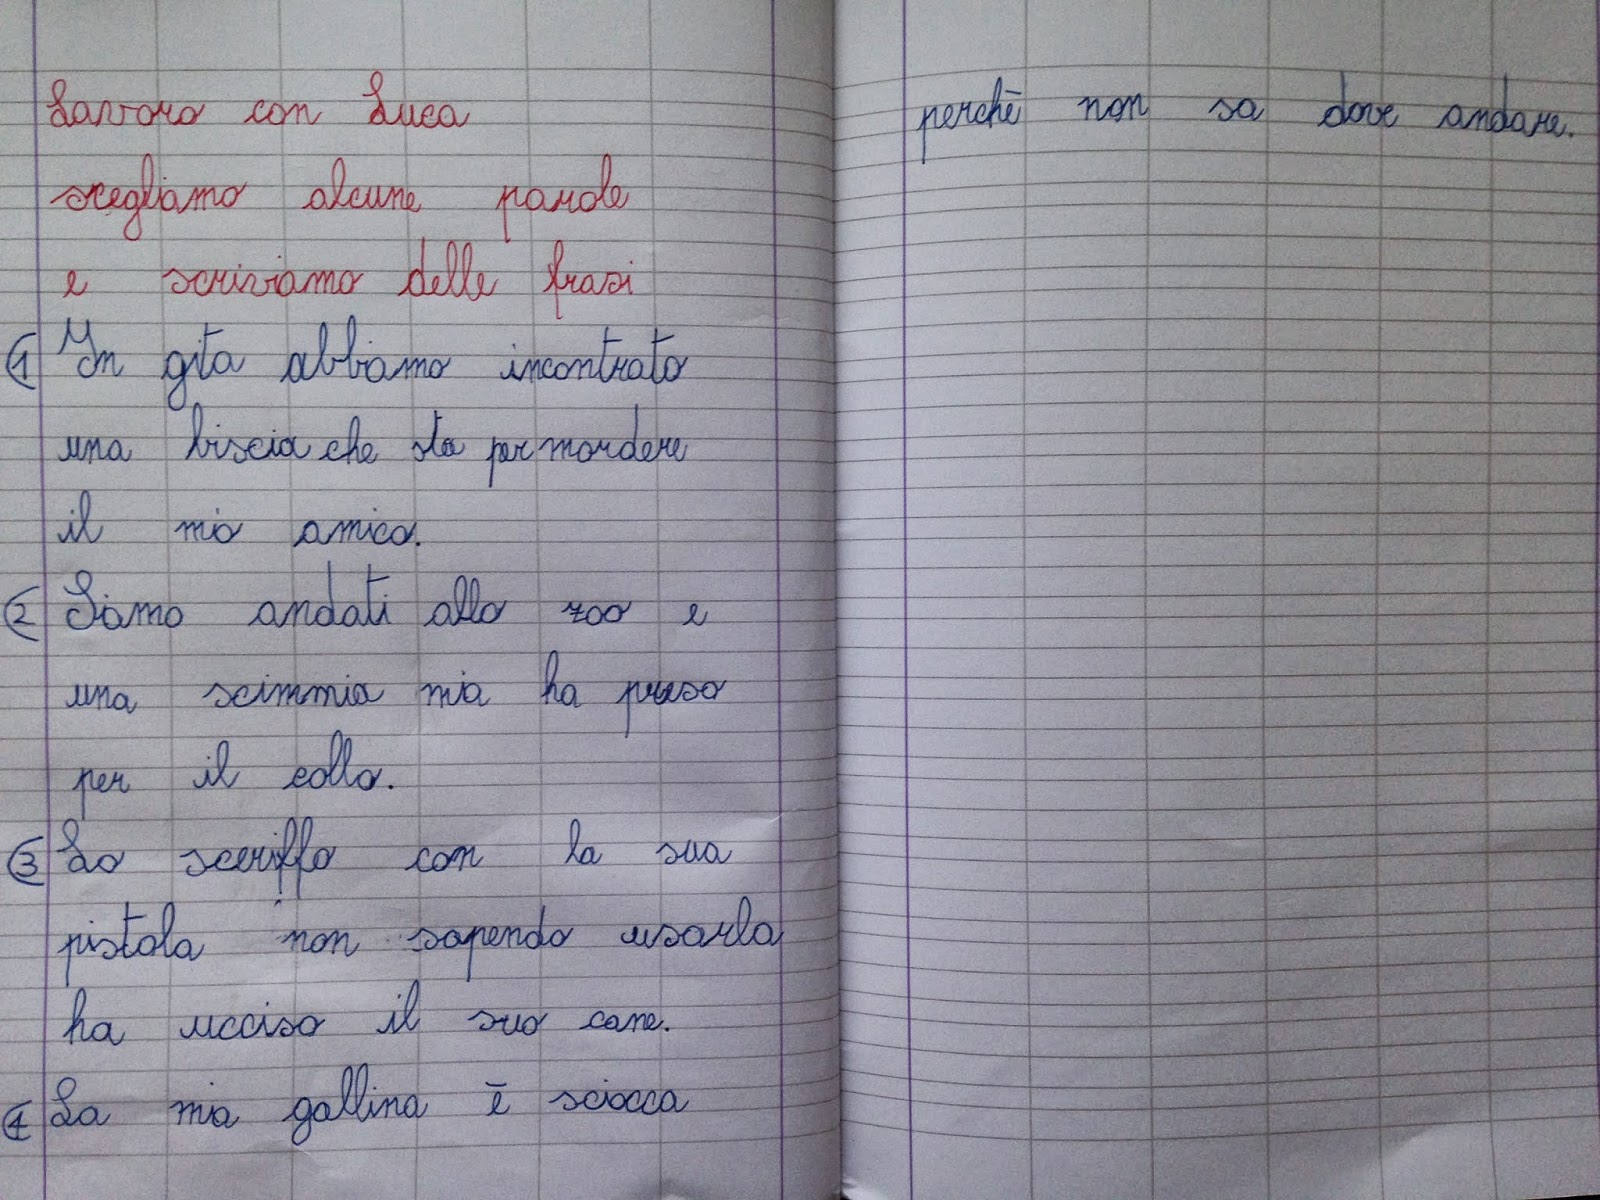 Lavoro con Luca
scegliamo alcune parole
e scriviamo delle frasi
1 In gita abbiamo incontrato
una biscia che sta per mordere
il mio amico.
2 Siamo andati allo zoo e
una scimmia mia ha preso
per il collo.
3 Lo sceriffo con la sua
pistola non sapendo usarla
ha ucciso il suo cane.
4 La mia gallina ē sciocca
perchē non sa dove andare.